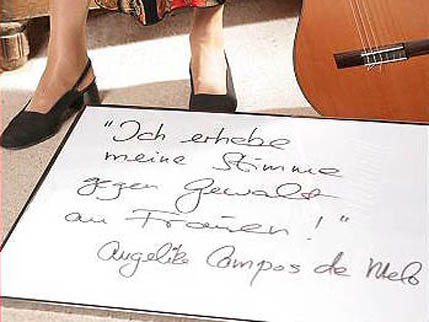 "Ich erhebe
meine Stimme
gegen Gewalt
an Frauen!"
Angelika Campos de Melo